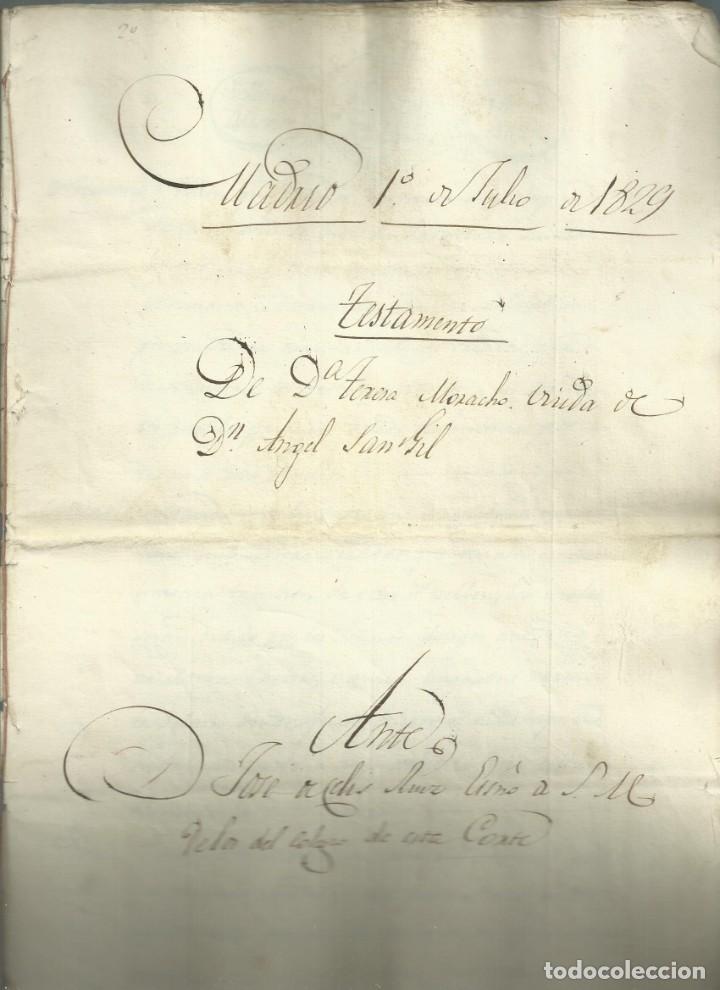 20
Madrid 1.º de Julio de 1829
Testamento
De D.ª Teresa Moracho viuda de
D.n Angel Sanz Gil
Ante
Jose de Celis Ruiz Esño de S. M.
de los del colegio de esta Corte
todocoleccion
todocoleccion.net